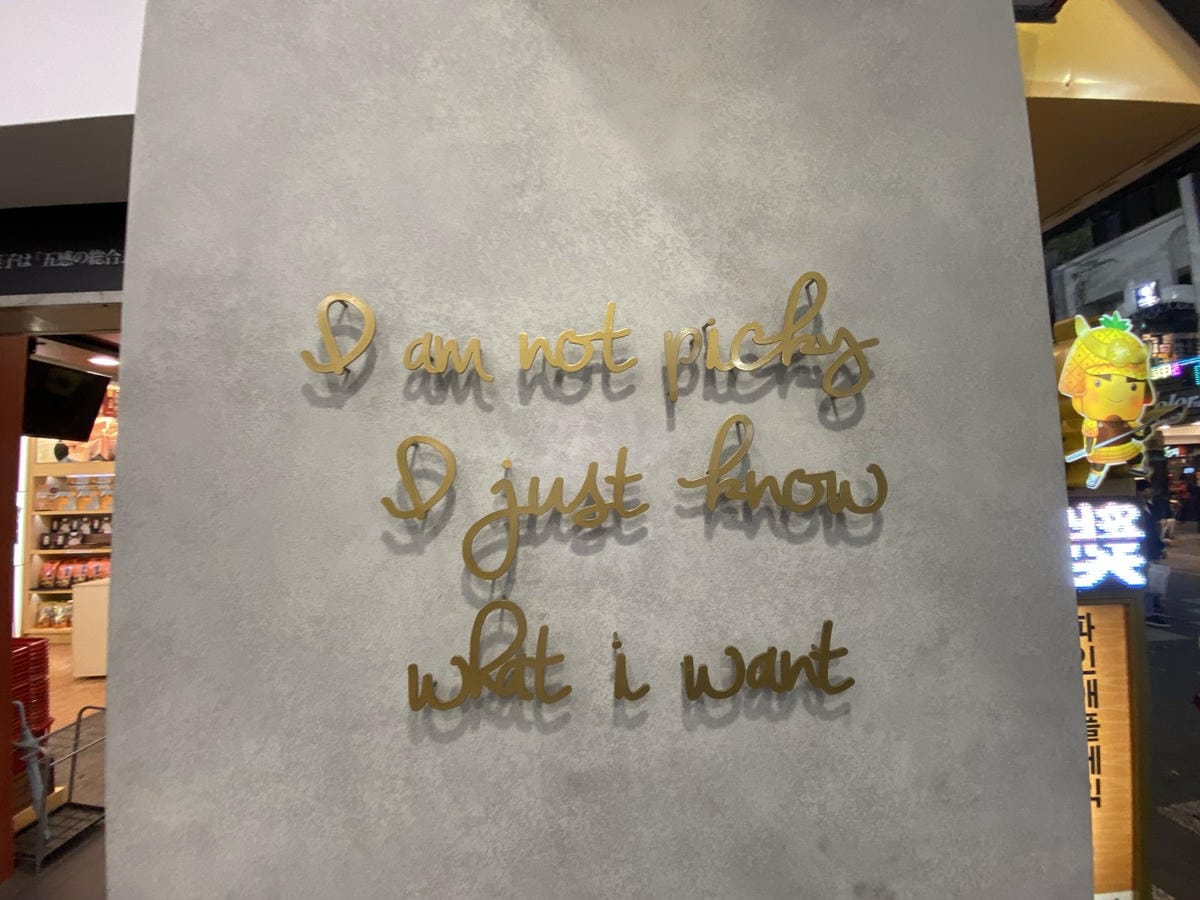 子は「五感の総合
I am not picky
I just know
what i want
파인애플케익